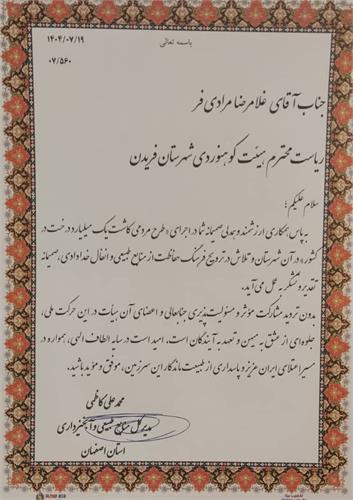 باسمه تعالی
۱۴۰۴/۰۷/۱۹
۰۷/۵۶۰
جناب آقای غلامرضا مرادی فر
ریاست محترم هیئت کوهنوردی شهرستان فریدن
سلام علیکم؛
به پاس همکاری ارزشمند و همدلی صمیمانه شما در اجرای «طرح مردمی کاشت یک میلیارد درخت در
کشور» در آن شهرستان و تلاش در ترویج فرهنگ حفاظت از منابع طبیعی و انفال خدادادی، صمیمانه
تقدیر و تشکر به عمل می آید.
بدون تردید مشارکت مؤثر و مسئولیت پذیری جنابعالی و اعضای آن هیأت در این حرکت ملی،
جلوه ای از عشق به میهن و تعهد به آیندگان است. امید است در سایه الطاف الهی، همواره در
مسیر اعتلای ایران عزیز و پاسداری از طبیعت ماندگار این سرزمین، موفق و مؤید باشید.
محمد علی کاظمی
مدیر کل منابع طبیعی و آبخیزداری
استان اصفهان